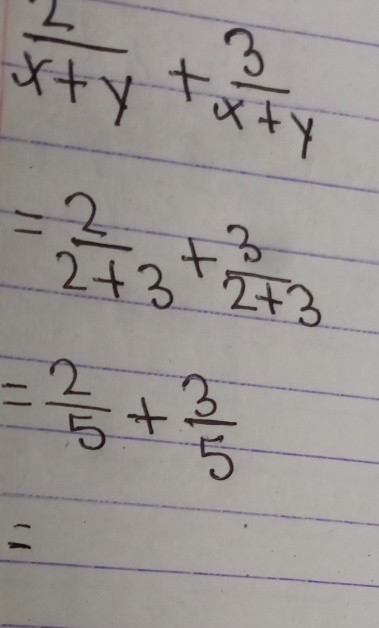 2/(x+y) + 3/(x+y)
= 2/(2+3) + 3/(2+3)
= 2/5 + 3/5
=